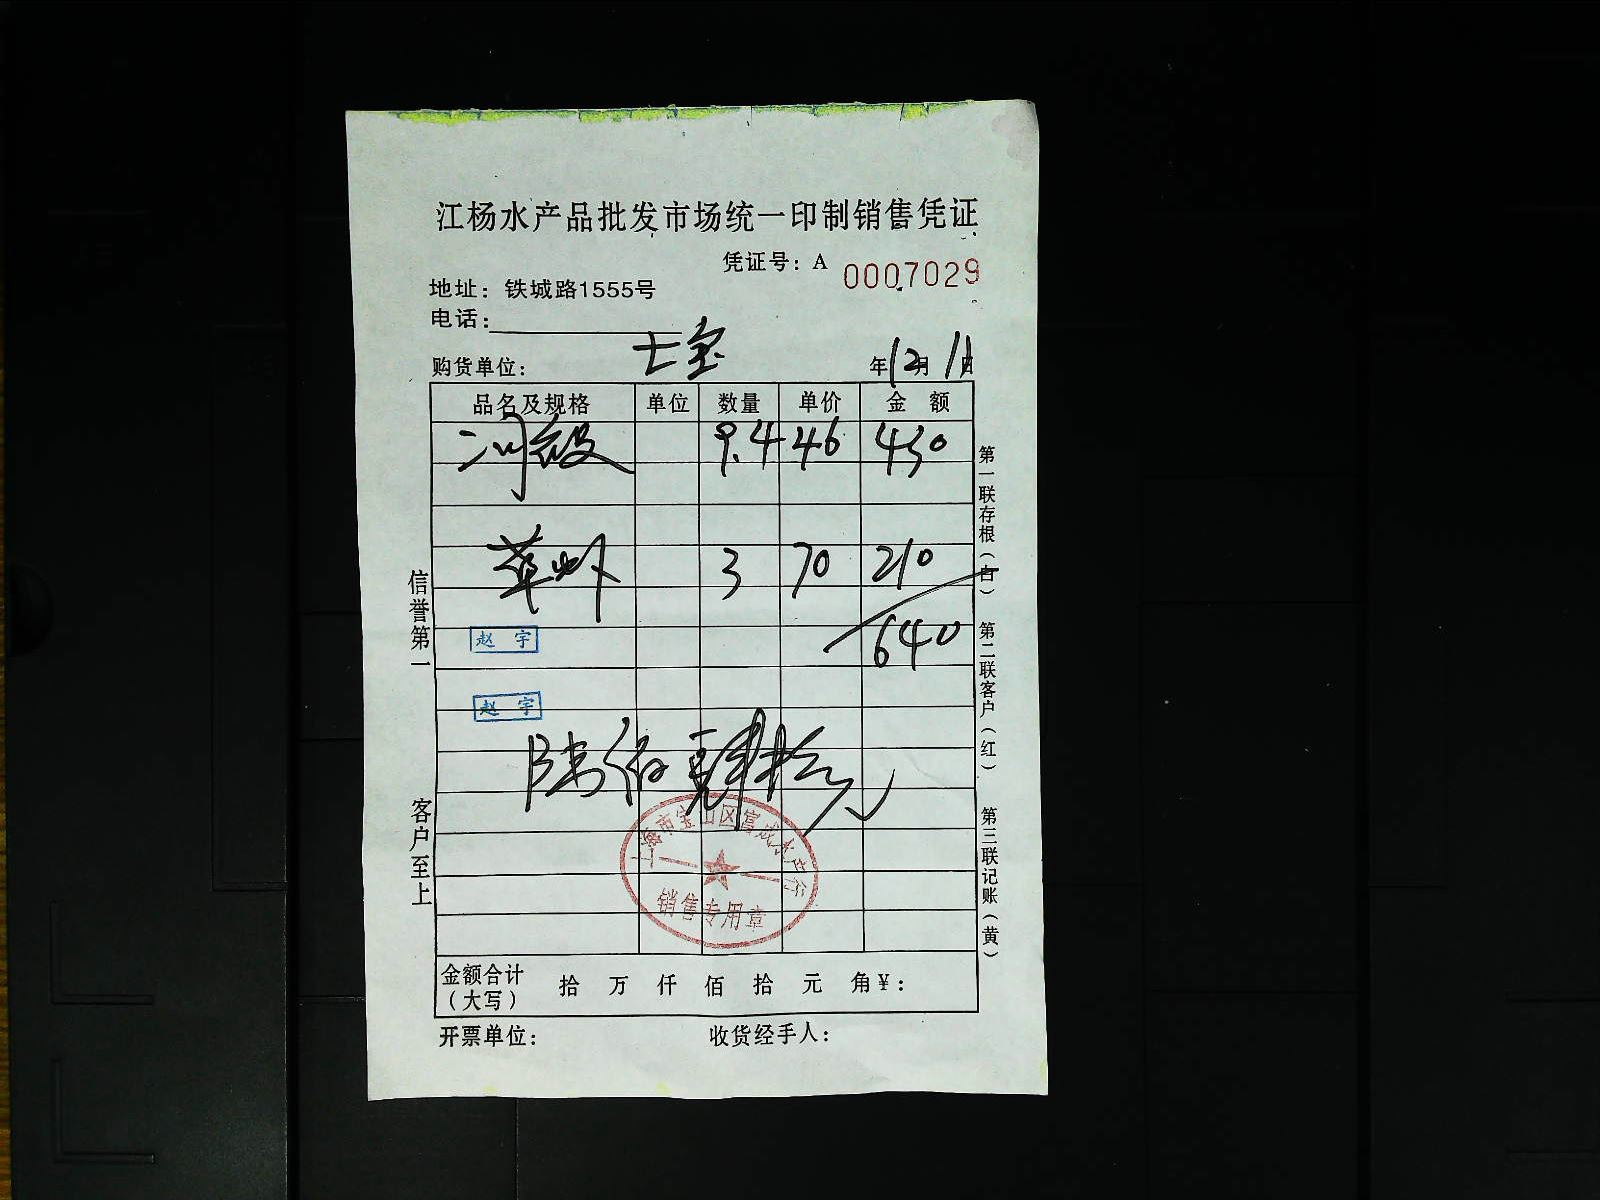 江杨水产品批发市场统一印制销售凭证
凭证号：A 0007029
地址：铁城路1555号
电话：
购货单位：七宝 年12月11日
品名及规格 单位 数量 单价 金额
9.4 46 430
草虾 3 70 210
640
赵宇
赵宇
陆佰肆拾元
上海市宝山区富成水产行
销售专用章
金额合计（大写） 拾 万 仟 佰 拾 元 角 ¥：
开票单位： 收货经手人：
信誉第一 客户至上
第一联存根（白） 第二联客户（红） 第三联记账（黄）